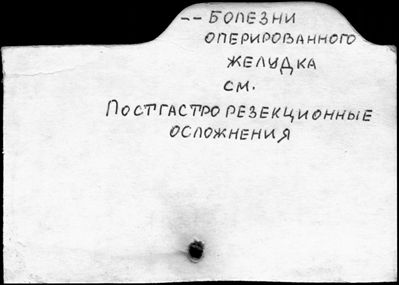 -- БОЛЕЗНИ
ОПЕРИРОВАННОГО
ЖЕЛУДКА
СМ.
ПОСТГАСТРОРЕЗЕКЦИОННЫЕ
ОСЛОЖНЕНИЯ